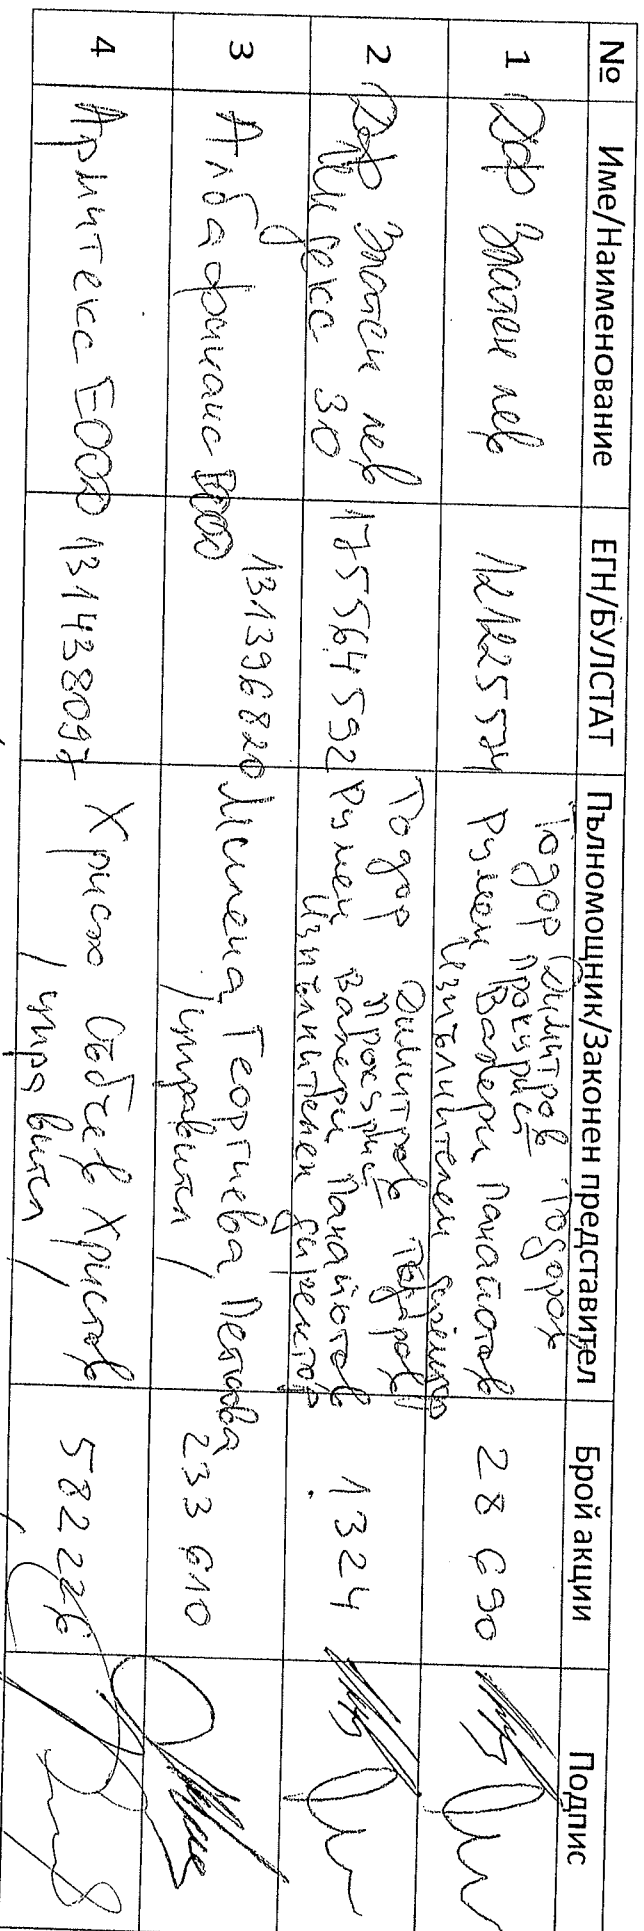 № Име/Наименование ЕГН/БУЛСТАТ Пълномощник/Законен представител Брой акции Подпис
1 ДФ Златен лев 121225574 Тодор Димитров Тодоров
прокурист
Румен Валери Панайотов
Изпълнителен директор
28 690
2 ДФ Златен лев
Индекс 30
175564592 Тодор Димитров Тодоров
прокурист
Румен Валери Панайотов
Изпълнителен директор
1324
3 Алфа финанс ЕООД 131396820 Милена Георгиева Пенкова
/управител/
233 610
4 Армитекс ЕООД 131438097 Христо Събчев Христов
/управител/
582 226